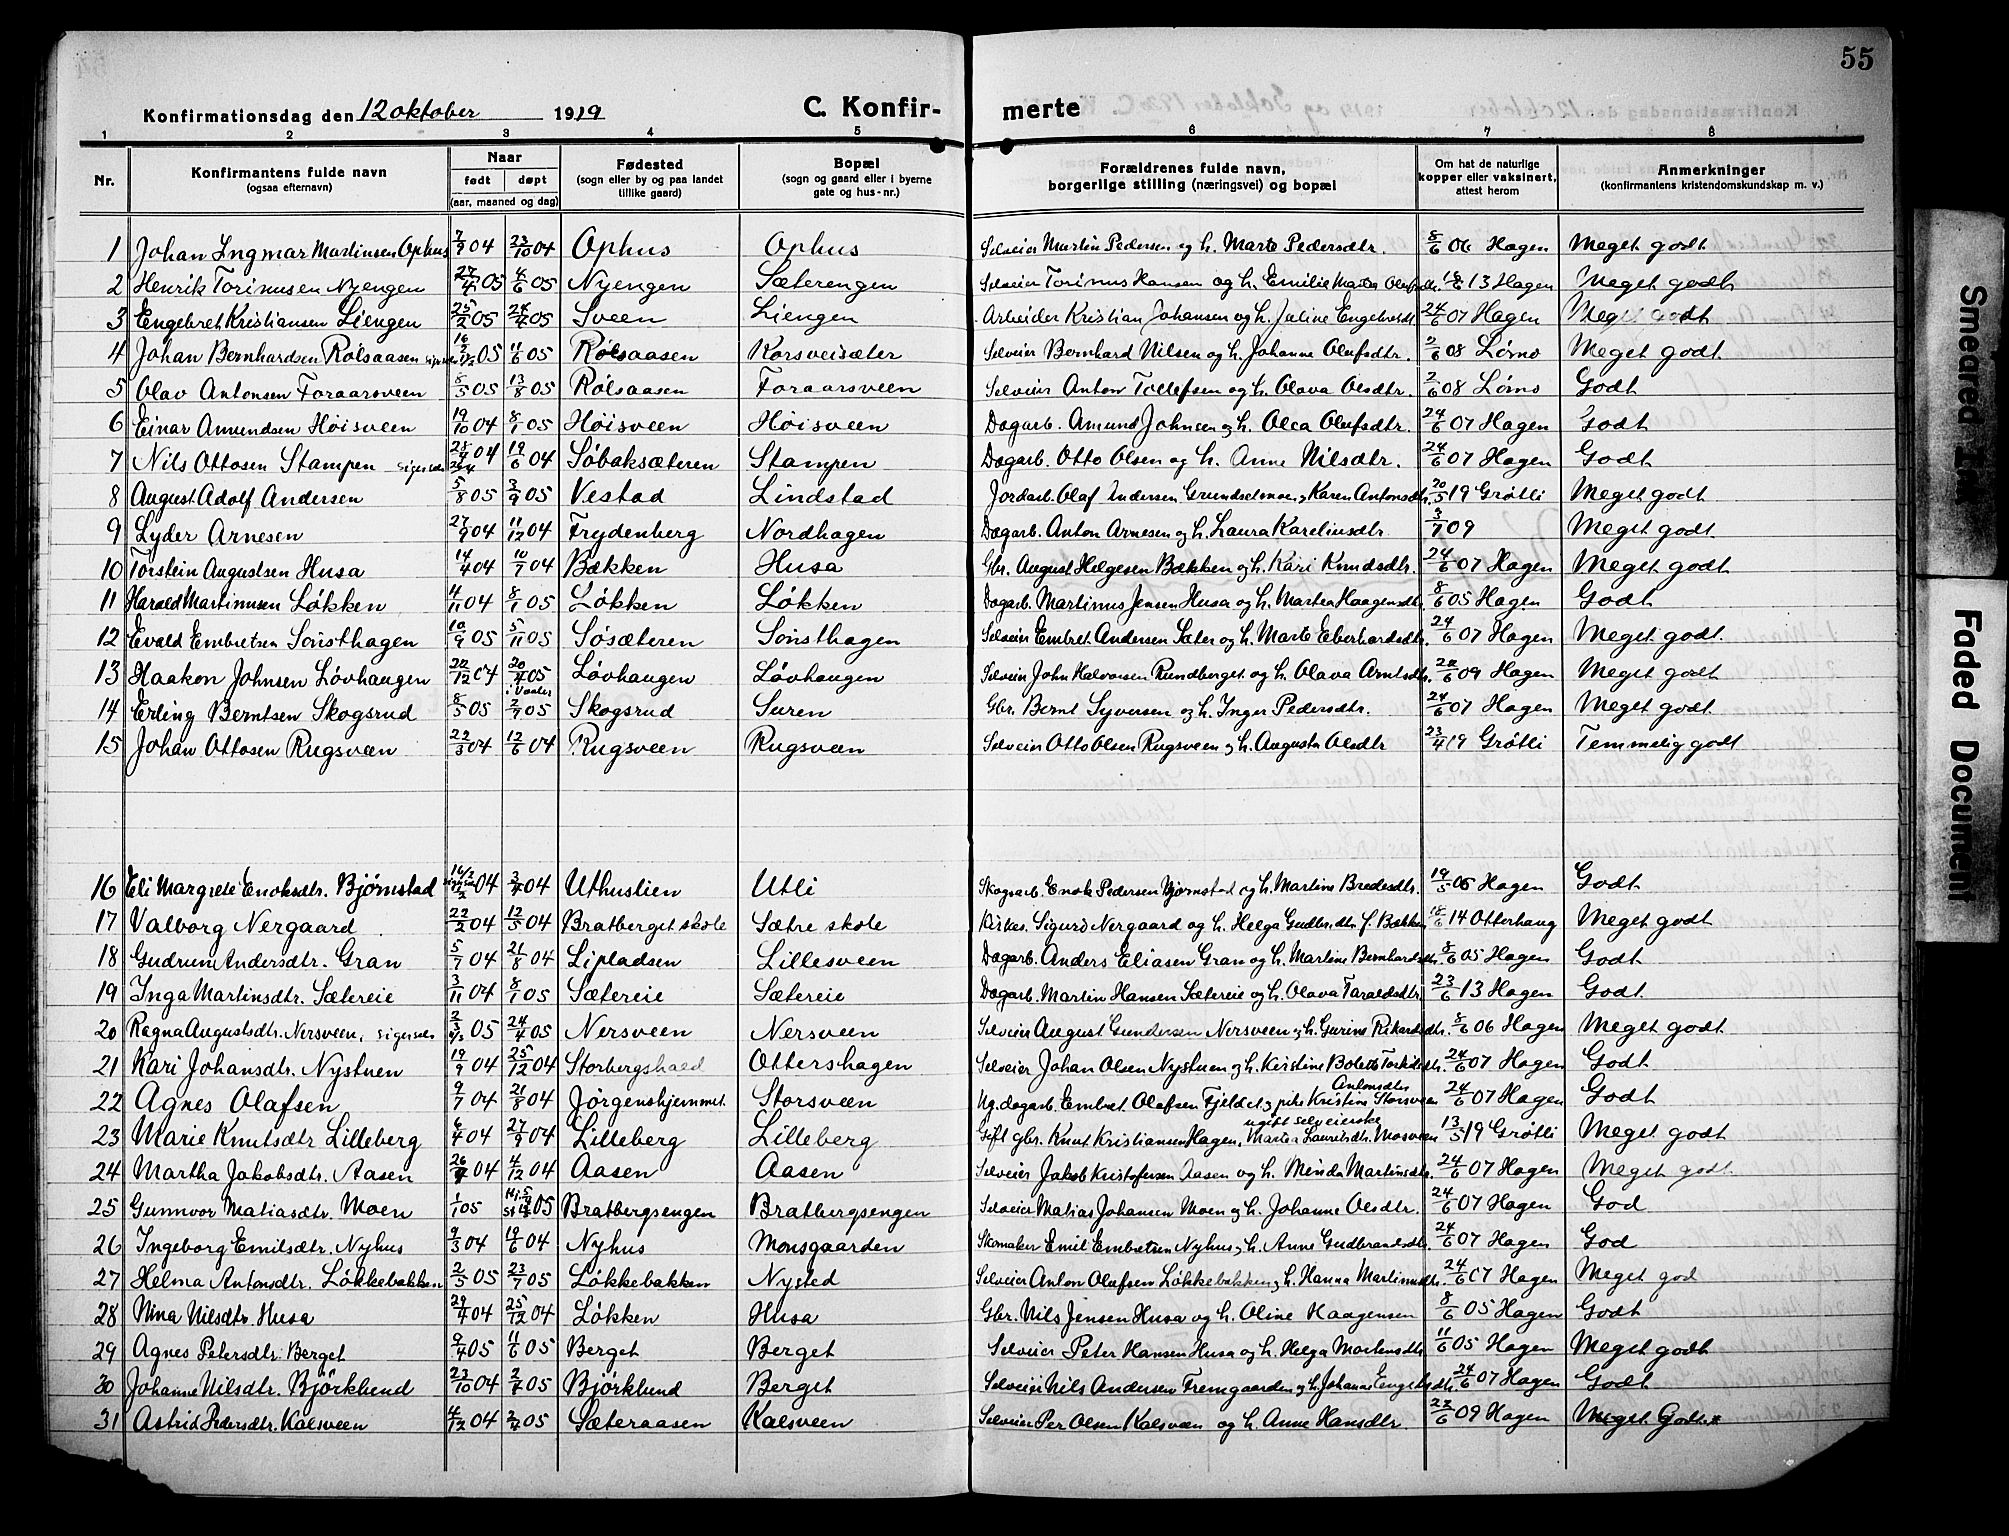 55
Konfirmationsdag den 12 oktober 1919 C. Konfir- merte
1 2 3 4 5 6 7 8
Nr. Konfirmantens fulde navn (ogsaa efternavn) Naar født døpt (aar, maaned og dag) Fødested (sogn eller by og paa landet tillike gaard) Bopæl (sogn og gaard eller i byerne gate og hus-nr.) Forældrenes fulde navn, borgerlige stilling (næringsvei) og bopæl Om hat de naturlige kopper eller vaksinert, attest herom Anmerkninger (konfirmantens kristendomskundskap m. v.)
1 Johan Ingmar Martinsen Ophus 7/9 04 23/10 04 Ophus Ophus Selveier Martin Pedersen og h. Marte Pedersdtr. 8/6 06 Hagen Meget godt
2 Henrik Torinusen Nyengen 27/4 05 4/6 05 Nyengen Sæterengen Selveier Torinus Hansen og h. Emilie Martea Olufsdtr. 18/6 13 Hagen Meget godt
3 Engebret Kristiansen Liengen 25/2 05 24/4 05 Sveen Liengen Arbeider Kristian Johansen og h. Juline Engebretsdt. 24/6 07 Hagen Meget godt
4 Johan Bernhardsen Rølsaasen 05 11/6 05 Rølsaasen Korsveisæter Selveier Bernhard Nilsen og h. Johanne Olufsdtr. 2/6 08 Lømo Meget godt
5 Olav Antonsen Foraarsveen 8/5 05 13/8 05 Rølsaasen Foraarsveen Selveier Anton Tollefsen og h. Olava Olsdtr. 2/6 08 Lømo Godt
6 Einar Amundsen Høisveen 19/10 04 8/1 05 Høisveen Høisveen Dagarb. Amund Johnsen og h. Olea Olufsdtr. 24/6 07 Hagen Godt
7 Nils Ottosen Stampen 04 19/6 04 Søbaksæteren Stampen Dagarb. Otto Olsen og h. Anne Nilsdtr. 24/6 07 Hagen Godt
8 August Adolf Andersen 5/8 05 3/9 05 Vestad Lindstad Jordarb. Olaf Andersen Grundsetmoen og Karen Antonsdtr. 20/5 19 Grøtli Meget godt
9 Lyder Arnesen 27/9 04 11/12 04 Frydenberg Nordhagen Dagarb. Anton Arnesen og h. Laura Karelinsdtr. 3/7 09 Meget godt
10 Torstein Augustsen Husa 14/4 04 10/7 04 Bækken Husa Gbr. August Helgesen Bækken og h. Kari Knudsdtr. 24/6 07 Hagen Meget godt
11 Harald Martinusen Løkken 4/11 04 8/1 05 Løkken Løkken Dagarb. Martinus Jensen Husa og h. Martea Haagensdtr. 8/6 05 Hagen Godt
12 Evald Embretsen Sønsthagen 10/9 05 5/11 05 Søsæteren Sønsthagen Selveier Embret Andersen Sæter og h. Marte Eberhardsdtr. 24/6 07 Hagen Meget godt.
13 Haakon Johnsen Løvhaugen 22/12 04 20/4 05 i Vaaler Løvhaugen Løvhaugen Selveier John Halvorsen Rundberget og h. Olava Arntsdtr. 22/6 09 Hagen Meget godt
14 Erling Berntsen Skogsrud 8/5 05 2/7 05 Skogsrud Suren Gbr. Bernt Syversen og h. Inger Pedersdtr. 24/6 07 Hagen Meget godt.
15 Johan Ottosen Rugsveen 22/3 04 12/6 04 Rugsveen Rugsveen Selveier Otto Olsen Rugsveen og h. Augusta Olsdtr 23/4 19 Grøtli Temmelig godt
16 Eli Margrete Enoksdtr. Bjørnstad 04 3/4 04 Uthuslien Utli Skogsarb. Enok Pedersen Bjørnstad og h. Martine Bredesdtr. 19/5 06 Hagen Godt
17 Valborg Nergaard 22/2 04 12/5 04 Bratberget skole Sætre skole Kirkes. Sigurd Nergaard og h. Helga Gudbr.dtr. f. Bækken 18/6 14 Otterhaug Meget godt
18 Gudrun Andersdtr. Gran 5/7 04 21/8 04 Lipladsen Lillesveen Dagarb. Anders Eliasen Gran og h. Martine Bernhardsdtr. 8/6 05 Hagen Godt
19 Inga Martinsdtr. Sætereie 3/11 04 8/1 05 Sætereie Sætereie Dagarb. Martin Hansen Sætereie og h. Olava Taraldsdtr. 23/6 13 Hagen Godt.
20 Ragna Augustsdtr. Nersveen, 05 24/4 05 Nersveen Nersveen Selveier August Gundersen Nersveen og h. Gurine Rikardsdtr. 8/6 06 Hagen Meget godt
21 Kari Johansdtr. Nystuen 19/9 04 25/12 04 Storbergshaed Ottershagen Selveier Johan Olsen Nystuen og h. Kristine Bolette Torkilsdtr. 24/6 07 Hagen Godt
22 Agnes Olafsen 9/7 04 21/8 04 Jørgenshjemmet. Storsveen Ug. dagarb. Embret Olafsen Fjeldet og pike Kristine Antonsdtr Storsveen 24/6 07 Hagen Godt
23 Marie Knutsdtr Lilleberg 6/4 04 27/9 04 Lilleberg Lilleberg Gift gbr. Knut Kristiansen Hagen, ugift selveierske Martea Lauritsdtr. Mosveen 13/5 19 Grøtli Meget godt
24 Martha Jakobsdtr. Aasen 04 4/12 04 Aasen Aasen Selveier Jakob Kristofersen Aasen og h. Minda Martinsdtr. 24/6 07 Hagen Meget godt.
25 Gunnvor Matiasdtr. Moen 1/1 05 05 Bratbergsengen Bratbergsengen Selveier Matias Johansen Moen og h. Johanne Olsdtr. 24/6 07 Hagen God
26 Ingeborg Emilsdtr. Nyhus 9/3 04 19/6 04 Nyhus Monsgaarden Skomaker Emil Embretsen Nyhus og h. Anne Gudbrandsdtr. 24/6 07 Hagen God
27 Helma Antonsdtr. Løkkebakken 2/5 05 23/7 05 Løkkebakken Nysted Selveier Anton Olafsen Løkkebakken og h. Hanna Martinusdtr. 24/6 07 Hagen Meget god
28 Nina Nilsdtr. Husa 29/4 04 25/12 04 Løkken Husa Gbr. Nils Jensen Husa og h. Oline Haagensen 8/6 05 Hagen Godt
29 Agnes Petersdtr. Berget 9/4 05 11/6 05 Berget Berget Selveier Peter Hansen Husa og h. Helga Mortensdtr 11/6 05 Hagen Meget godt
30 Johanne Nilsdtr. Bjørklund 23/10 04 2/4 05 Bjørklund Berget Selveier Nils Andersen Fremgaarden og h. Johanne Engebretsdtr. 24/6 07 Hagen Godt
31 Astrid Pedersdtr. Kalsveen 4/12 04 2/4 05 Sæteraasen Kalsveen Selveier Per Olsen Kalsveen og h. Anne Hansdtr. 22/6 09 Hagen Meget Godt
Smeared Ink
Faded Document